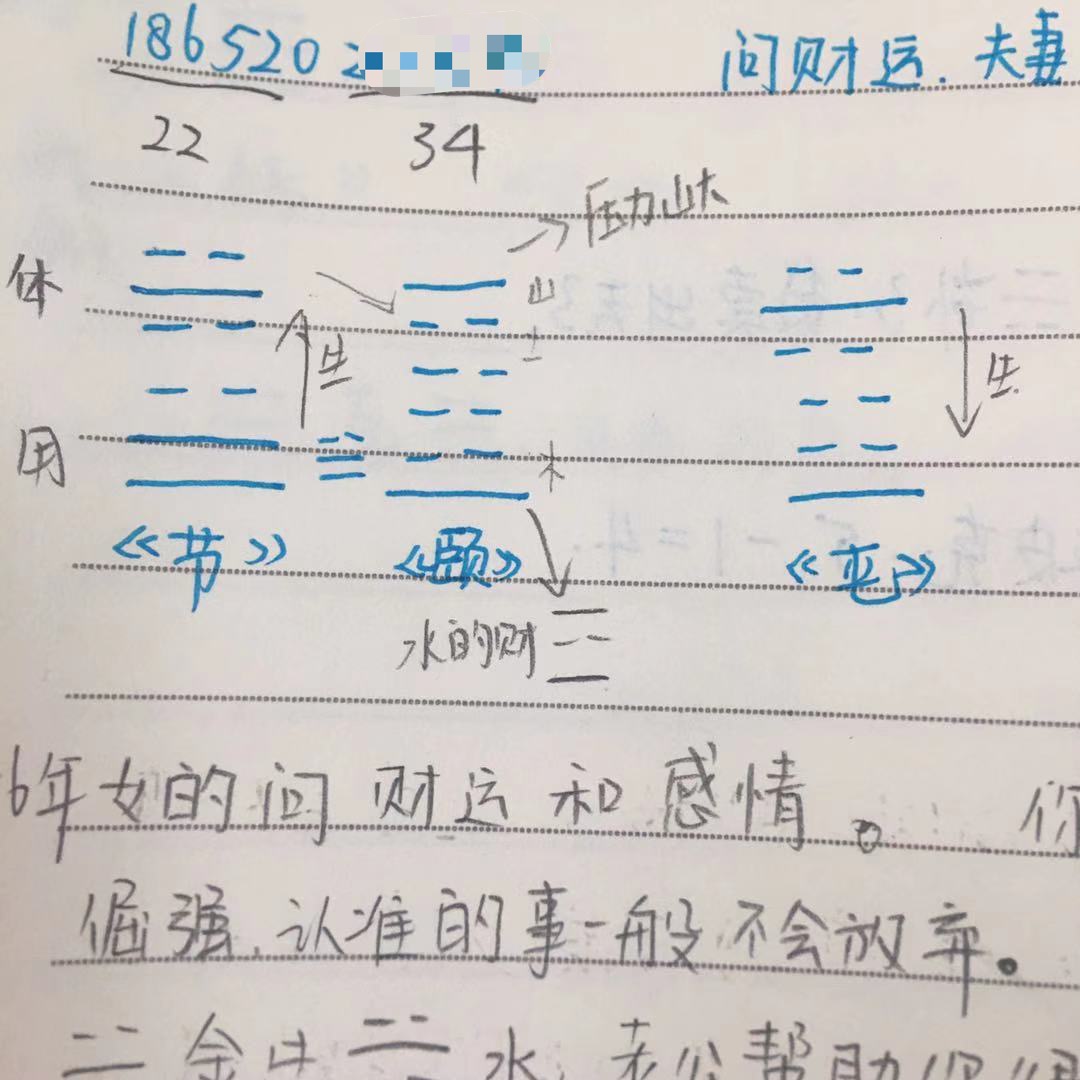 186520 问财运.夫妻
22 34
压力山大
体 山
生 土 生
用 木
《节》 《颐》 《屯》
水的财
6年女的问财运和感情。你
倔强,认准的事一般不会放弃。
金生 水,老公帮助你